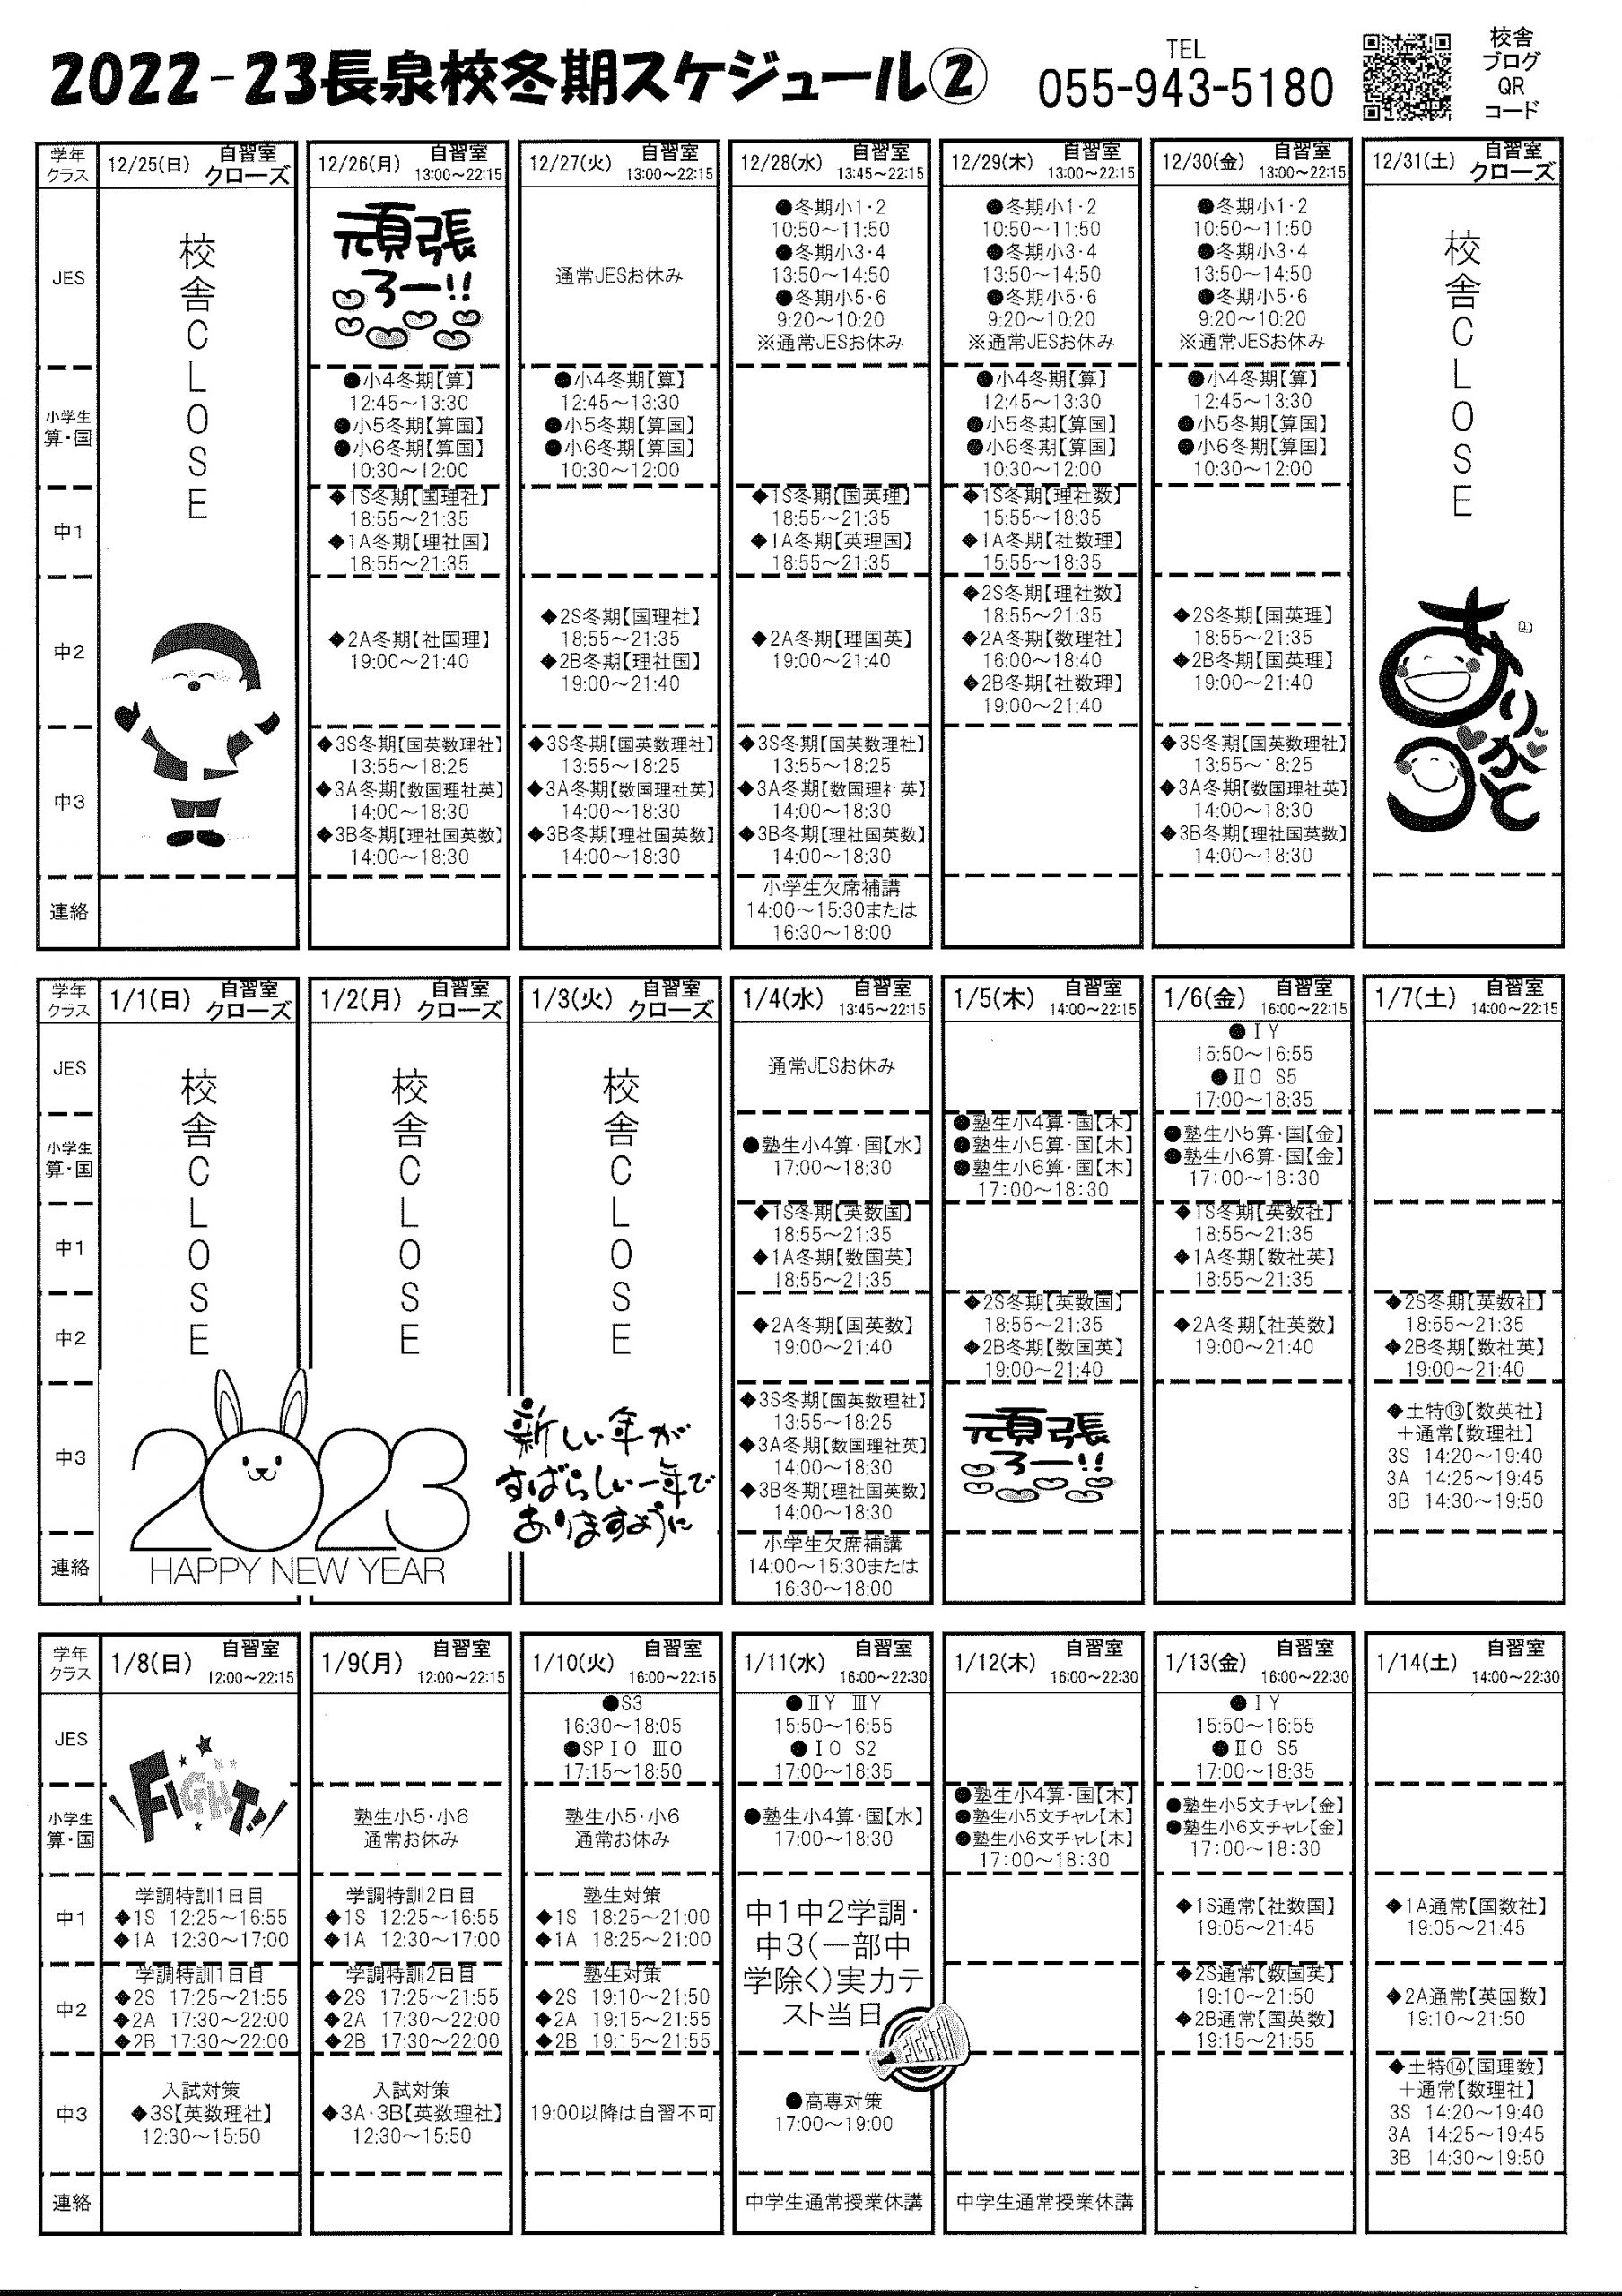 2022-23長泉校冬期スケジュール②
TEL
055-943-5180
校舎
ブログ
QR
コード
学年
クラス
12/25(日) 自習室
クローズ
12/26(月) 自習室
13:00～22:15
12/27(火) 自習室
13:00～22:15
12/28(水) 自習室
13:45～22:15
12/29(木) 自習室
13:00～22:15
12/30(金) 自習室
13:00～22:15
12/31(土) 自習室
クローズ
JES
小学生
算・国
中1
中2
中3
連絡
校舎CLOSE
頑張
ろー!!
●小4冬期【算】
12:45～13:30
●小5冬期【算国】
●小6冬期【算国】
10:30～12:00
◆1S冬期【国理社】
18:55～21:35
◆1A冬期【理社国】
18:55～21:35
◆2A冬期【社国理】
19:00～21:40
◆3S冬期【国英数理社】
13:55～18:25
◆3A冬期【数国理社英】
14:00～18:30
◆3B冬期【理社国英数】
14:00～18:30
通常JESお休み
●小4冬期【算】
12:45～13:30
●小5冬期【算国】
●小6冬期【算国】
10:30～12:00
◆2S冬期【国理社】
18:55～21:35
◆2B冬期【理社国】
19:00～21:40
◆3S冬期【国英数理社】
13:55～18:25
◆3A冬期【数国理社英】
14:00～18:30
◆3B冬期【理社国英数】
14:00～18:30
●冬期小1・2
10:50～11:50
●冬期小3・4
13:50～14:50
●冬期小5・6
9:20～10:20
※通常JESお休み
◆1S冬期【国英理】
18:55～21:35
◆1A冬期【英理国】
18:55～21:35
◆2A冬期【理国英】
19:00～21:40
◆3S冬期【国英数理社】
13:55～18:25
◆3A冬期【数国理社英】
14:00～18:30
◆3B冬期【理社国英数】
14:00～18:30
小学生欠席補講
14:00～15:30または
16:30～18:00
●冬期小1・2
10:50～11:50
●冬期小3・4
13:50～14:50
●冬期小5・6
9:20～10:20
※通常JESお休み
●小4冬期【算】
12:45～13:30
●小5冬期【算国】
●小6冬期【算国】
10:30～12:00
◆1S冬期【理社数】
15:55～18:35
◆1A冬期【社数理】
15:55～18:35
◆2S冬期【理社数】
18:55～21:35
◆2A冬期【数理社】
16:00～18:40
◆2B冬期【社数理】
19:00～21:40
●冬期小1・2
10:50～11:50
●冬期小3・4
13:50～14:50
●冬期小5・6
9:20～10:20
※通常JESお休み
●小4冬期【算】
12:45～13:30
●小5冬期【算国】
●小6冬期【算国】
10:30～12:00
◆2S冬期【国英理】
18:55～21:35
◆2B冬期【国英理】
19:00～21:40
◆3S冬期【国英数理社】
13:55～18:25
◆3A冬期【数国理社英】
14:00～18:30
◆3B冬期【理社国英数】
14:00～18:30
校舎CLOSE
ありがとう
学年
クラス
1/1(日) 自習室
クローズ
1/2(月) 自習室
クローズ
1/3(火) 自習室
クローズ
1/4(水) 自習室
13:45～22:15
1/5(木) 自習室
14:00～22:15
1/6(金) 自習室
16:00～22:15
1/7(土) 自習室
14:00～22:15
JES
小学生
算・国
中1
中2
中3
連絡
校舎CLOSE
校舎CLOSE
2023
HAPPY NEW YEAR
校舎CLOSE
新しい年が
すばらしい一年で
ありますように
通常JESお休み
●塾生小4算・国【水】
17:00～18:30
◆1S冬期【英数国】
18:55～21:35
◆1A冬期【数国英】
18:55～21:35
◆2A冬期【国英数】
19:00～21:40
◆3S冬期【国英数理社】
13:55～18:25
◆3A冬期【数国理社英】
14:00～18:30
◆3B冬期【理社国英数】
14:00～18:30
小学生欠席補講
14:00～15:30または
16:30～18:00
●塾生小4算・国【木】
●塾生小5算・国【木】
●塾生小6算・国【木】
17:00～18:30
◆2S冬期【英数国】
18:55～21:35
◆2B冬期【数国英】
19:00～21:40
頑張
ろー!!
●ⅠY
15:50～16:55
●ⅡO S5
17:00～18:35
●塾生小5算・国【金】
●塾生小6算・国【金】
17:00～18:30
◆1S冬期【英数社】
18:55～21:35
◆1A冬期【数社英】
18:55～21:35
◆2A冬期【社英数】
19:00～21:40
◆2S冬期【英数社】
18:55～21:35
◆2B冬期【数社英】
19:00～21:40
◆土特⑬【数英社】
＋通常【数理社】
3S 14:20～19:40
3A 14:25～19:45
3B 14:30～19:50
学年
クラス
1/8(日) 自習室
12:00～22:15
1/9(月) 自習室
12:00～22:15
1/10(火) 自習室
16:00～22:15
1/11(水) 自習室
16:00～22:30
1/12(木) 自習室
16:00～22:30
1/13(金) 自習室
16:00～22:30
1/14(土) 自習室
14:00～22:30
JES
小学生
算・国
中1
中2
中3
連絡
FIGHT!
学調特訓1日目
◆1S 12:25～16:55
◆1A 12:30～17:00
学調特訓1日目
◆2S 17:25～21:55
◆2A 17:30～22:00
◆2B 17:30～22:00
入試対策
◆3S【英数理社】
12:30～15:50
塾生小5・小6
通常お休み
学調特訓2日目
◆1S 12:25～16:55
◆1A 12:30～17:00
学調特訓2日目
◆2S 17:25～21:55
◆2A 17:30～22:00
◆2B 17:30～22:00
入試対策
◆3A・3B【英数理社】
12:30～15:50
●S3
16:30～18:05
●SPⅠO ⅢO
17:15～18:50
塾生小5・小6
通常お休み
塾生対策
◆1S 18:25～21:00
◆1A 18:25～21:00
塾生対策
◆2S 19:10～21:50
◆2A 19:15～21:55
◆2B 19:15～21:55
19:00以降は自習不可
●ⅡY ⅢY
15:50～16:55
●ⅠO S2
17:00～18:35
●塾生小4算・国【水】
17:00～18:30
中1中2学調・
中3(一部中
学除く)実力テ
スト当日
●高専対策
17:00～19:00
中学生通常授業休講
●塾生小4算・国【木】
●塾生小5文チャレ【木】
●塾生小6文チャレ【木】
17:00～18:30
中学生通常授業休講
●ⅠY
15:50～16:55
●ⅡO S5
17:00～18:35
●塾生小5文チャレ【金】
●塾生小6文チャレ【金】
17:00～18:30
◆1S通常【社数国】
19:05～21:45
◆2S通常【数国英】
19:10～21:50
◆2B通常【国英数】
19:15～21:55
◆1A通常【国数社】
19:05～21:45
◆2A通常【英国数】
19:10～21:50
◆土特⑭【国理数】
＋通常【数理社】
3S 14:20～19:40
3A 14:25～19:45
3B 14:30～19:50